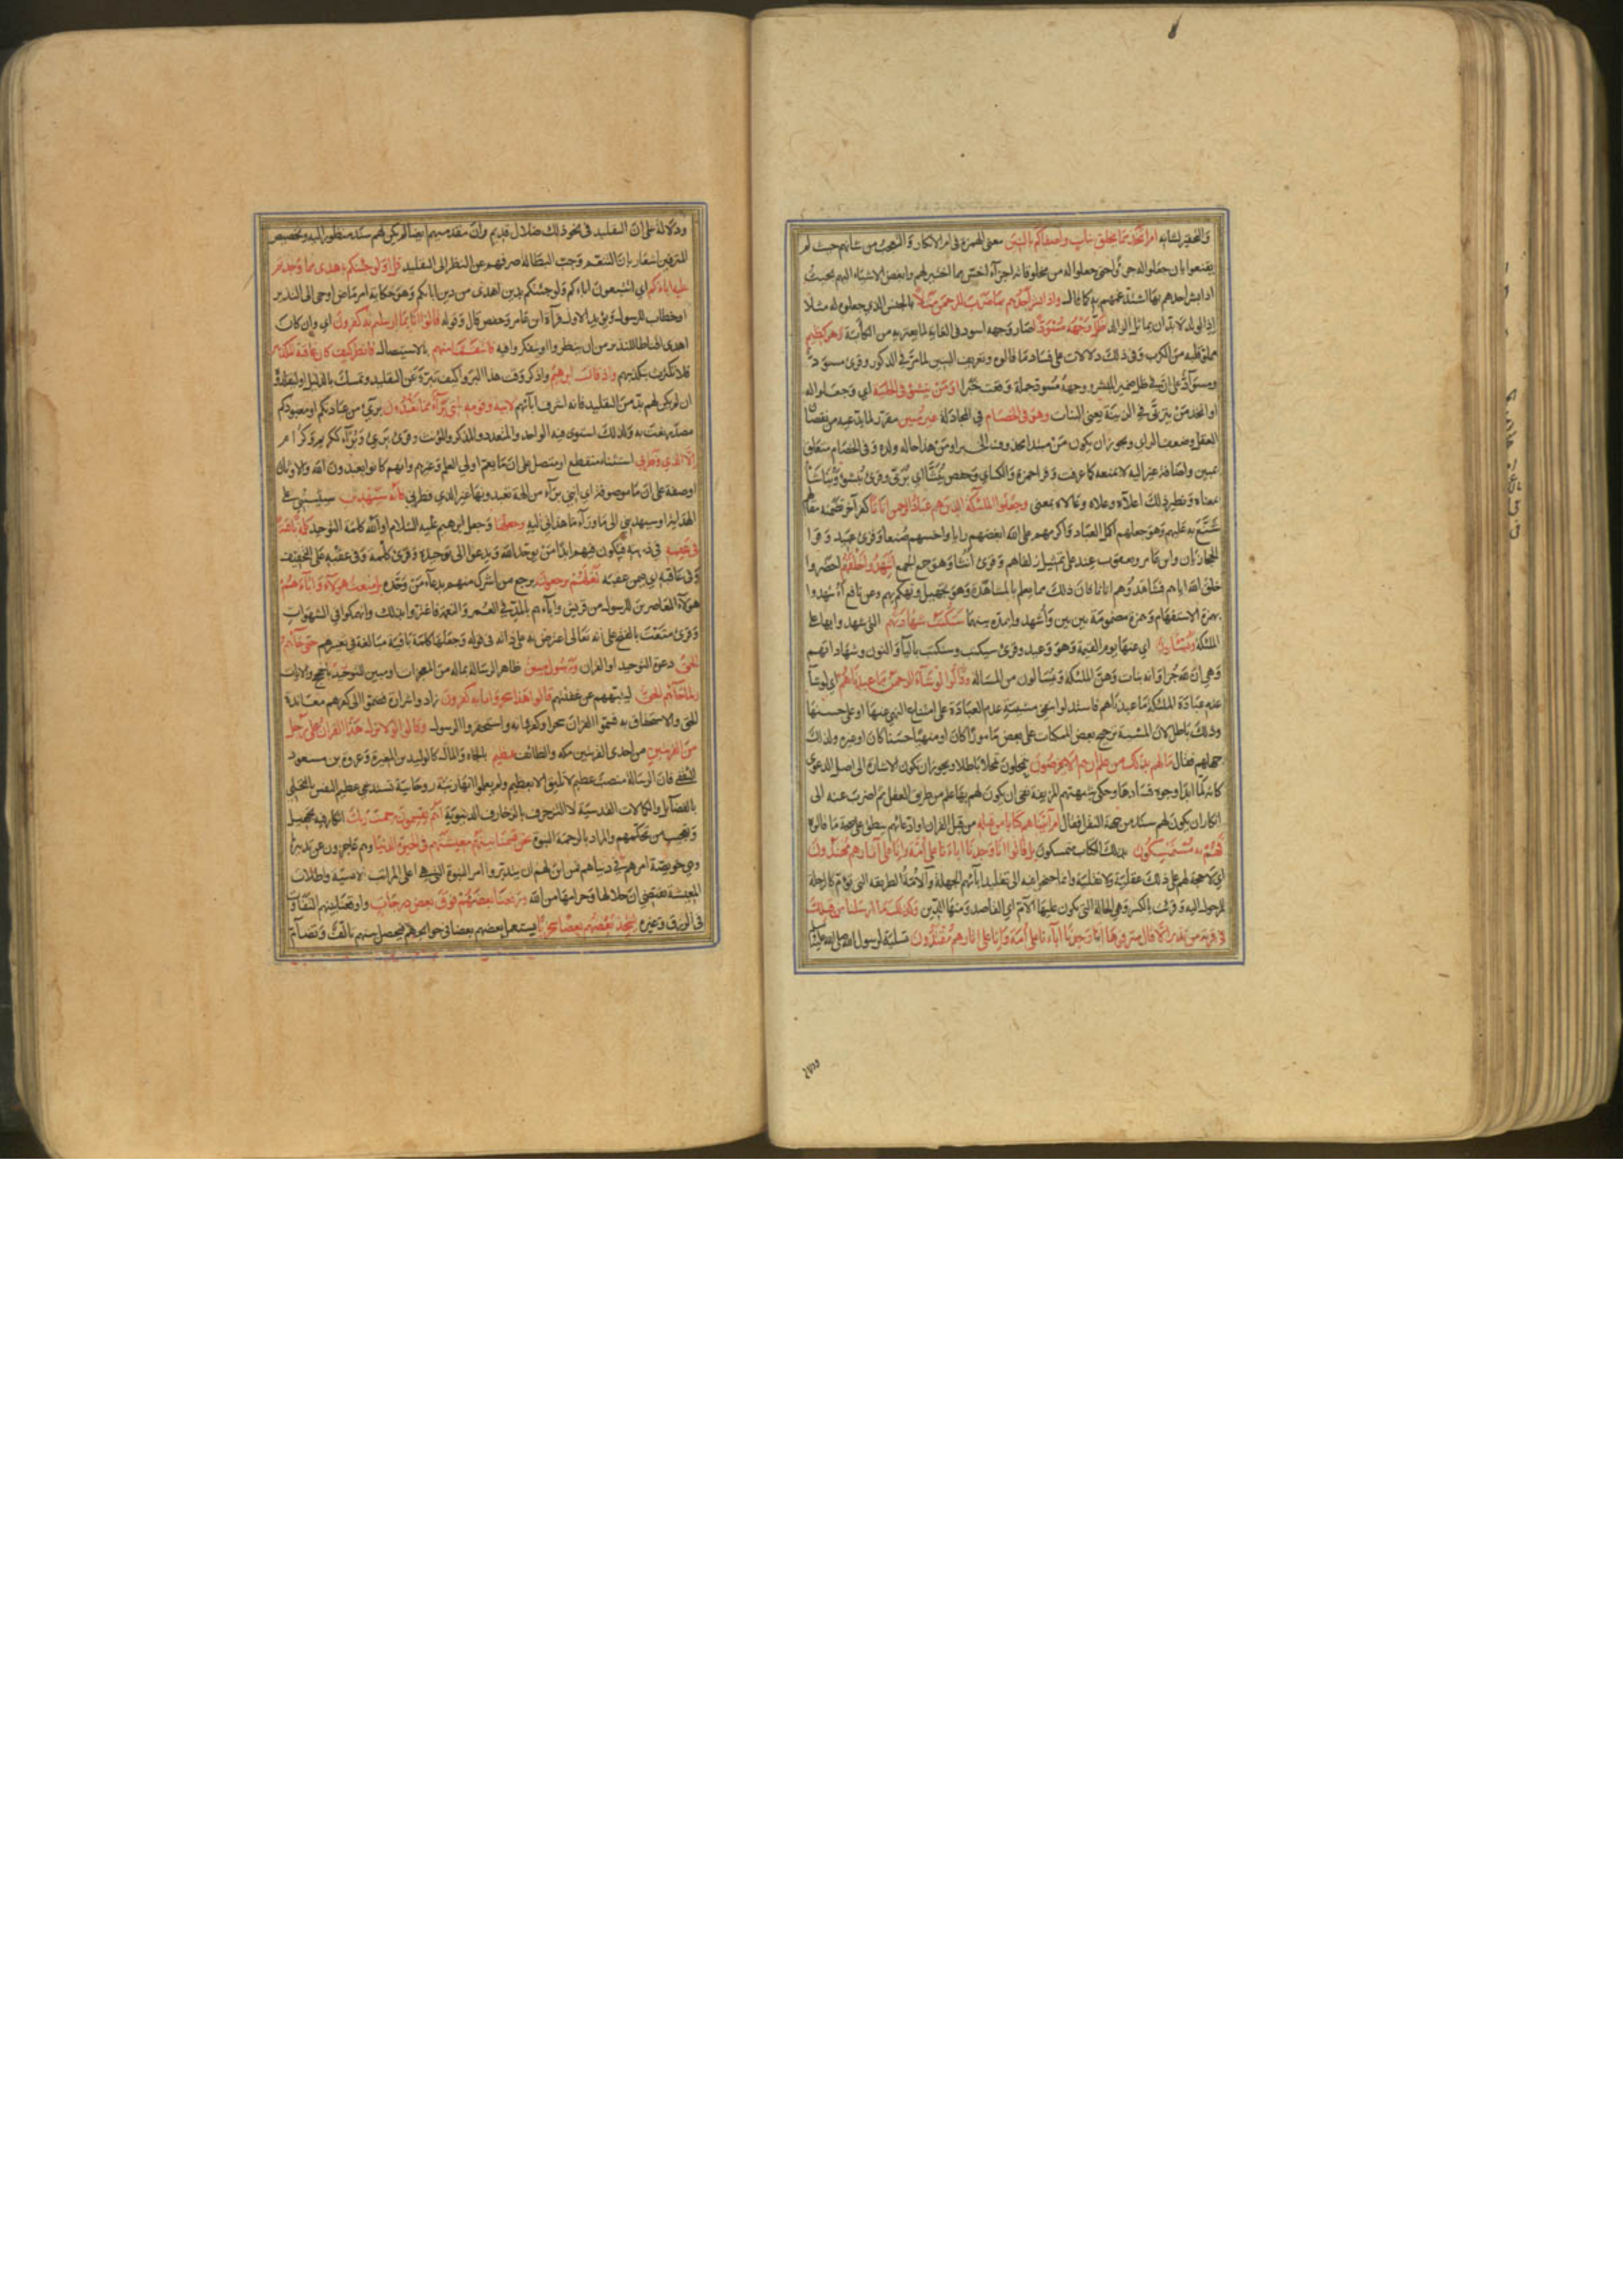 والتحقير لشانه ام اتخذ مما يخلق بنات واصفاكم بالبنين معنى الهمزة في ام الانكار والتعجب من شانهم حيث لم
يقنعوا بان جعلوا له جزءا حتى جعلوا له من مخلوقاته اجزاء اخس مما اختير لهم وابغض الاشياء اليهم بحيث
اذا بشر احدهم بها اشتد غمهم به كما قال واذا بشر احدهم بما ضرب للرحمن مثلا بالجنس الذي جعلوه له مثلا
اذ الولد لا بد ان يماثل الوالد ظل وجهه مسودا صار وجهه اسود في الغاية لما يعتريه من الكآبة وهو كظيم
مملو قلبه من الكرب وفي ذلك دلالات على فساد ما قالوه وتعريف البنين لما مر في الذكور وقرئ مسود
ومسواد على ان في ظل ضمير المبشر ووجهه مسود جملة وقعت خبرا اومن ينشؤ في الحلية اي وجعلوا له
او اتخذ من يتربى في الزينة يعني البنات وهو في الخصام في المجادلة غير مبين مقرر لما يدعيه من نقصان
العقل وضعف الراي ويجوز ان يكون من مبتدا محذوف الخبر اي او من هذا حاله ولده وفي الخصام متعلق
بمبين واضافة غير اليه لا يمنعه كما عرفت وقرا حمزة والكسائي وحفص ينشا اي يربى وقرئ ينشؤ ويناشا
بمعناه ونظير ذلك اعلاه وعلاه وعالاه بمعنى وجعلوا الملئكة الذين هم عباد الرحمن اناثا كفر آخر تضمنه مقالهم
شنع به عليهم وهو جعلهم اكمل العباد واكرمهم على الله انقصهم رايا واخسهم صنفا وقرئ عبيد وقرا
الحجازيان وابن عامر ويعقوب عند على تمثيل زلفاهم وقرئ انثا وهو جمع الجمع اشهدوا خلقهم احضروا
خلق الله اياهم فشاهدوهم اناثا فان ذلك مما يعلم بالمشاهدة وهو تجهيل وتهكم بهم وعن نافع آاشهدوا
بهمزة الاستفهام وهمزة مضمومة بين بين وآاشهدوا بمدة بينهما ستكتب شهادتهم التي شهدوا بها على
الملئكة ويسئلون اي عنها يوم القيمة وهو وعيد وقرئ سيكتب وسنكتب بالياء والنون وشهاداتهم
وهي ان لله جزا وان له بنات وهن الملئكة ويساءلون من المسالة وقالوا لو شاء الرحمن ما عبدناهم اي لو شاء
عدم عبادة الملئكة ما عبدناهم فاستدلوا بنفي مشيئة عدم العبادة على امتناع النهي عنها او على حسنها
وذلك باطل لان المشية ترجح بعض الممكنات على بعض مامورا كان او منهيا حسنا كان او غيره ولذلك
جهلهم فقال ما لهم بذلك من علم ان هم الا يخرصون يتمحلون تمحلا باطلا ويجوز ان تكون الاشارة الى اصل الدعوى
كانه لما ابدا وجوه فسادها وحكى شبهتهم المزيفة نفى ان يكون لهم بها علم من طريق العقل ثم اضرب عنه الى
انكار ان يكون لهم سند من جهة النقل فقال ام اتيناهم كتابا من قبله من قبل القران او ادعائهم ينطق على صحة ما قالوه
فهم به مستمسكون بذلك الكتاب متمسكون بل قالوا انا وجدنا اباءنا على امة وانا على اثارهم مهتدون
اي لا حجة لهم على ذلك عقلية ولا نقلية وانما جنحوا فيه الى تقليد ابائهم الجهلة والامة الطريقة التي تؤم كالرحلة
للمرحول اليه وقرئت بالكسر وهي الحالة التي يكون عليها الآم اي القاصد ومنها الدين وكذلك ما ارسلنا من قبلك
في قرية من نذير الا قال مترفوها انا وجدنا اباءنا على امة وانا على اثارهم مقتدون تسلية لرسول الله صلى الله عليه
ودلالة على ان التقليد في نحو ذلك ضلال قديم وان مقدميهم ايضا لم يكن لهم سند منظور اليه وتخصيص
المترفين اشعار بان التنعم وحب البطالة صرفهم عن النظر الى التقليد قل اولو جئتكم باهدى مما وجدتم
عليه اباءكم اي اتتبعون اباءكم ولو جئتكم بدين اهدى من دين ابائكم وهو حكاية امر ماض اوحي الى النذير
او خطاب للرسول ويؤيد الاول قراءة ابن عامر وحفص قال وقوله قالوا انا بما ارسلتم به كفرون اي وان كان
اهدى اقناطا للنذير من ان ينظروا او يتفكروا فيه فانتقمنا منهم بالاستيصال فانظر كيف كان عاقبة المكذبين
فلا تكترث بتكذيبهم واذ قال ابرهيم واذكر وقت هذا ليروا كيف تبرا عن التقليد وتمسك بالدليل او ليقلدوه
ان لم يكن لهم بد من التقليد فانه اشرف ابائهم لابيه وقومه انني براء مما تعبدون برئ من عبادتكم او معبودكم
مصدر نعت به ولذلك استوى فيه الواحد والمتعدد والمذكر والمؤنث وقرئ برئ وبراء ككريم وكرام
الا الذي فطرني استثناء منقطع او متصل على ان ما يعم اولي العلم وغيرهم وانهم كانوا يعبدون الله والاوثان
او صفة على ان ما موصوفة اي انني براء من آلهة تعبدونها غير الذي فطرني فانه سيهدين سيثبتني على
الهداية او سيهديني الى ما وراء ما هداني اليه وجعلها وجعل ابرهيم عليه السلام او الله كلمة التوحيد كلمة باقية
في عقبه في ذريته فيكون فيهم ابدا من يوحد الله ويدعو الى توحيده وقرئ كلمة وفي عقبه على التخفيف
وفي عاقبه اي فيمن عقبه لعلهم يرجعون يرجع من اشرك منهم بدعاء من وحده بل متعت هؤلاء واباءهم
هؤلاء المعاصرين للرسول من قريش واباءهم بالمد في العمر والنعمة فاغتروا بذلك وانهمكوا في الشهوات
وقرئ متعت بالفتح على انه تعالى اعترض به على ذاته في قوله وجعلها كلمة باقية مبالغة في تعييرهم حتى جاءهم
الحق دعوة التوحيد او القران ورسول مبين ظاهر الرسالة بما له من المعجزات او مبين للتوحيد بالحجج والايات
ولما جاءهم الحق لينبههم عن غفلتهم قالوا هذا سحر وانا به كفرون زادوا شرارة فضموا الى كفرهم معاندة
الحق والاستخفاف به فسموا القران سحرا وكفروا به واستحقروا الرسول وقالوا لولا نزل هذا القران على رجل
من القريتين من احدى القريتين مكة والطائف عظيم بالجاه والمال كالوليد بن المغيرة وعروة بن مسعود
الثقفي فان الرسالة منصب عظيم لا يليق الا بعظيم ولم يعلموا انها رتبة روحانية تستدعي عظيم النفس بالتحلي
بالفضائل والكمالات القدسية لا التزخرف بالزخارف الدنيوية اهم يقسمون رحمت ربك انكار فيه تجهيل
وتعجيب من تحكمهم والمراد بالرحمة النبوة نحن قسمنا بينهم معيشتهم في الحيوة الدنيا وهم عاجزون عن تدبيرها
وهي خويصة امرهم في دنياهم فمن اين لهم ان يتدبروا امر النبوة التي هي اعلى المراتب الانسية واطلاق
المعيشة يقتضي ان حلالها وحرامها من الله ورفعنا بعضهم فوق بعض درجات واوقعنا بينهم التفاوت
في الرزق وغيره ليتخذ بعضهم بعضا سخريا يستعمل بعضهم بعضا في حوائجهم فيحصل بينهم تالف وتضام